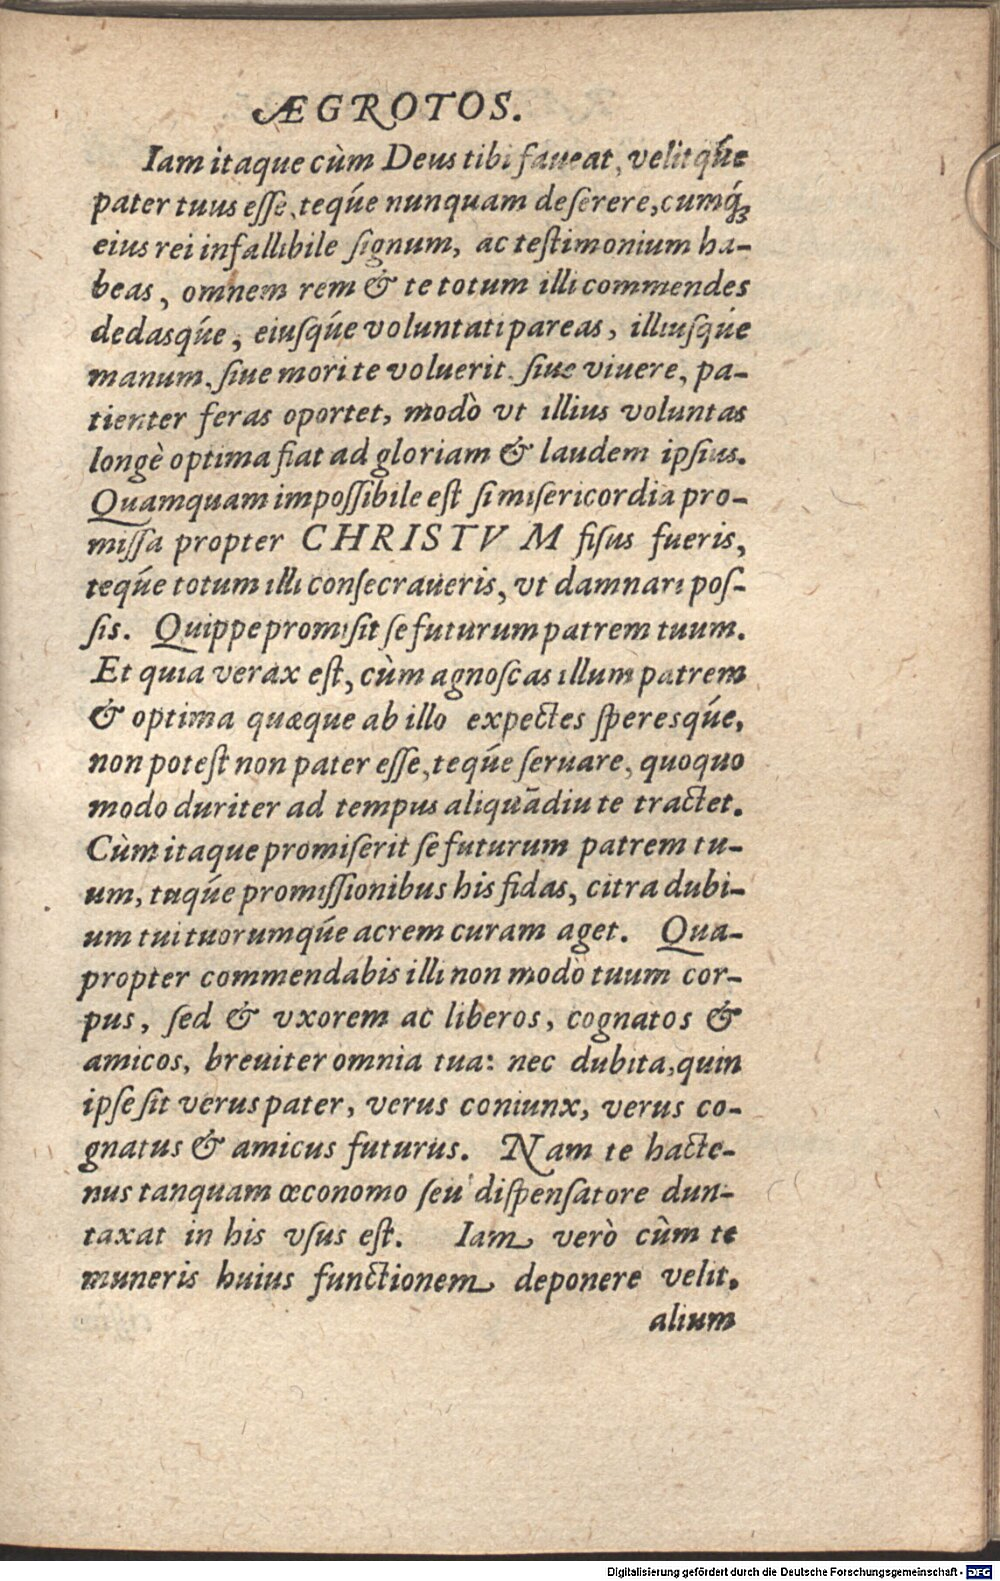 ÆGROTOS.
Iam itaque cùm Deus tibi faueat, velitq́ue
pater tuus eſſe, teq́ue nunquam deſerere, cumq́ꝫ
eius rei infallibile ſignum, ac teſtimonium ha-
beas, omnem rem & te totum illi commendes
dedasq́ue, eiuſq́ue voluntati pareas, illiuſq́ue
manum, ſiue mori te voluerit, ſiue viuere, pa-
tienter feras oportet, modò vt illius voluntas
longè optima fiat ad gloriam & laudem ipſius.
Quamquam impoſſibile eſt ſi miſericordia pro-
miſſa propter CHRISTVM fiſus fueris,
teq́ue totum illi conſecraueris, vt damnari poſ-
ſis. Quippe promiſit ſe futurum patrem tuum.
Et quia verax eſt, cùm agnoſcas illum patrem
& optima quæque ab illo expectes ſperesq́ue,
non poteſt non pater eſſe, teq́ue ſeruare, quoquo
modo duriter ad tempus aliquãdiu te tractet.
Cùm itaque promiſerit ſe futurum patrem tu-
um, tuq́ue promiſſionibus his fidas, citra dubi-
um tui tuorumq́ue acrem curam aget. Qua-
propter commendabis illi non modò tuum cor-
pus, ſed & vxorem ac liberos, cognatos &
amicos, breuiter omnia tua: nec dubita, quin
ipſe ſit verus pater, verus coniunx, verus co-
gnatus & amicus futurus. Nam te hacte-
nus tanquam œconomo ſeu diſpenſatore dun-
taxat in his vſus eſt. Iam verò cùm te
muneris huius functionem deponere velit,
alium
Digitalisierung gefördert durch die Deutsche Forschungsgemeinschaft - DFG